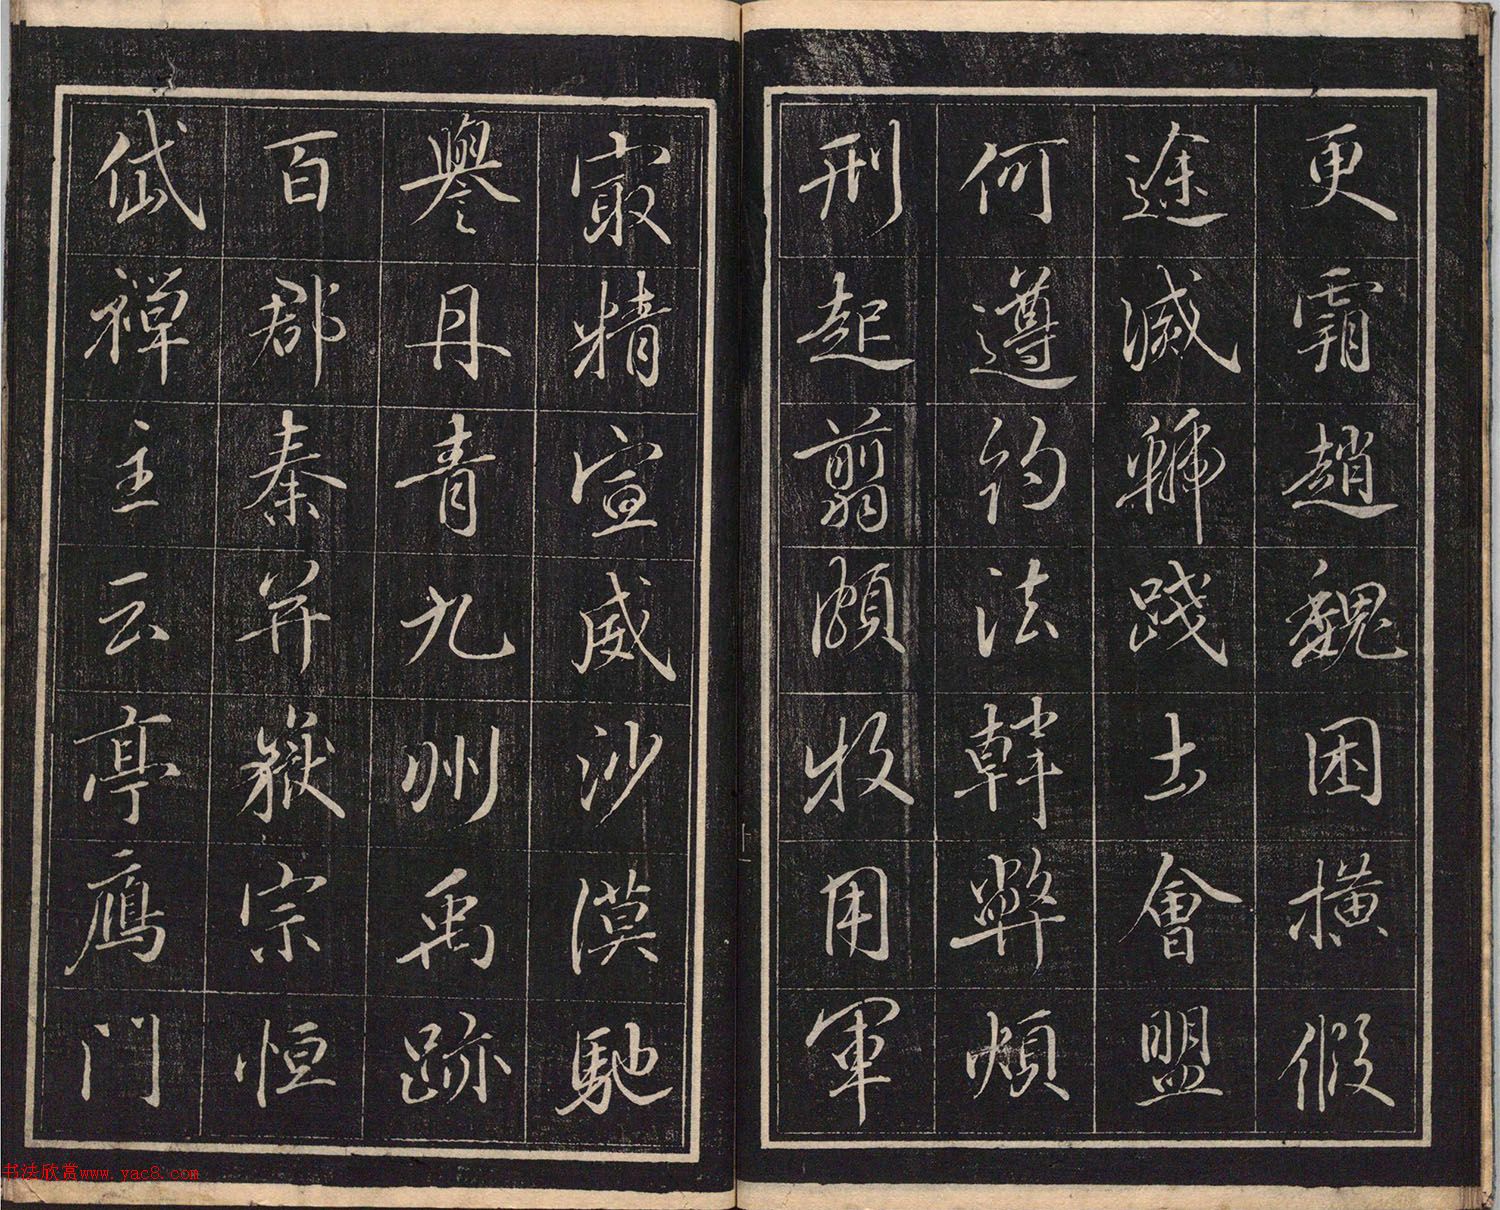 更霸趙魏困橫假
途滅虢踐土會盟
何遵約法韓弊煩
刑起翦頗牧用軍
最精宣威沙漠馳
譽丹青九州禹跡
百郡秦并嶽宗恒
岱禪主云亭鴈門
书法欣赏www.yac8.com